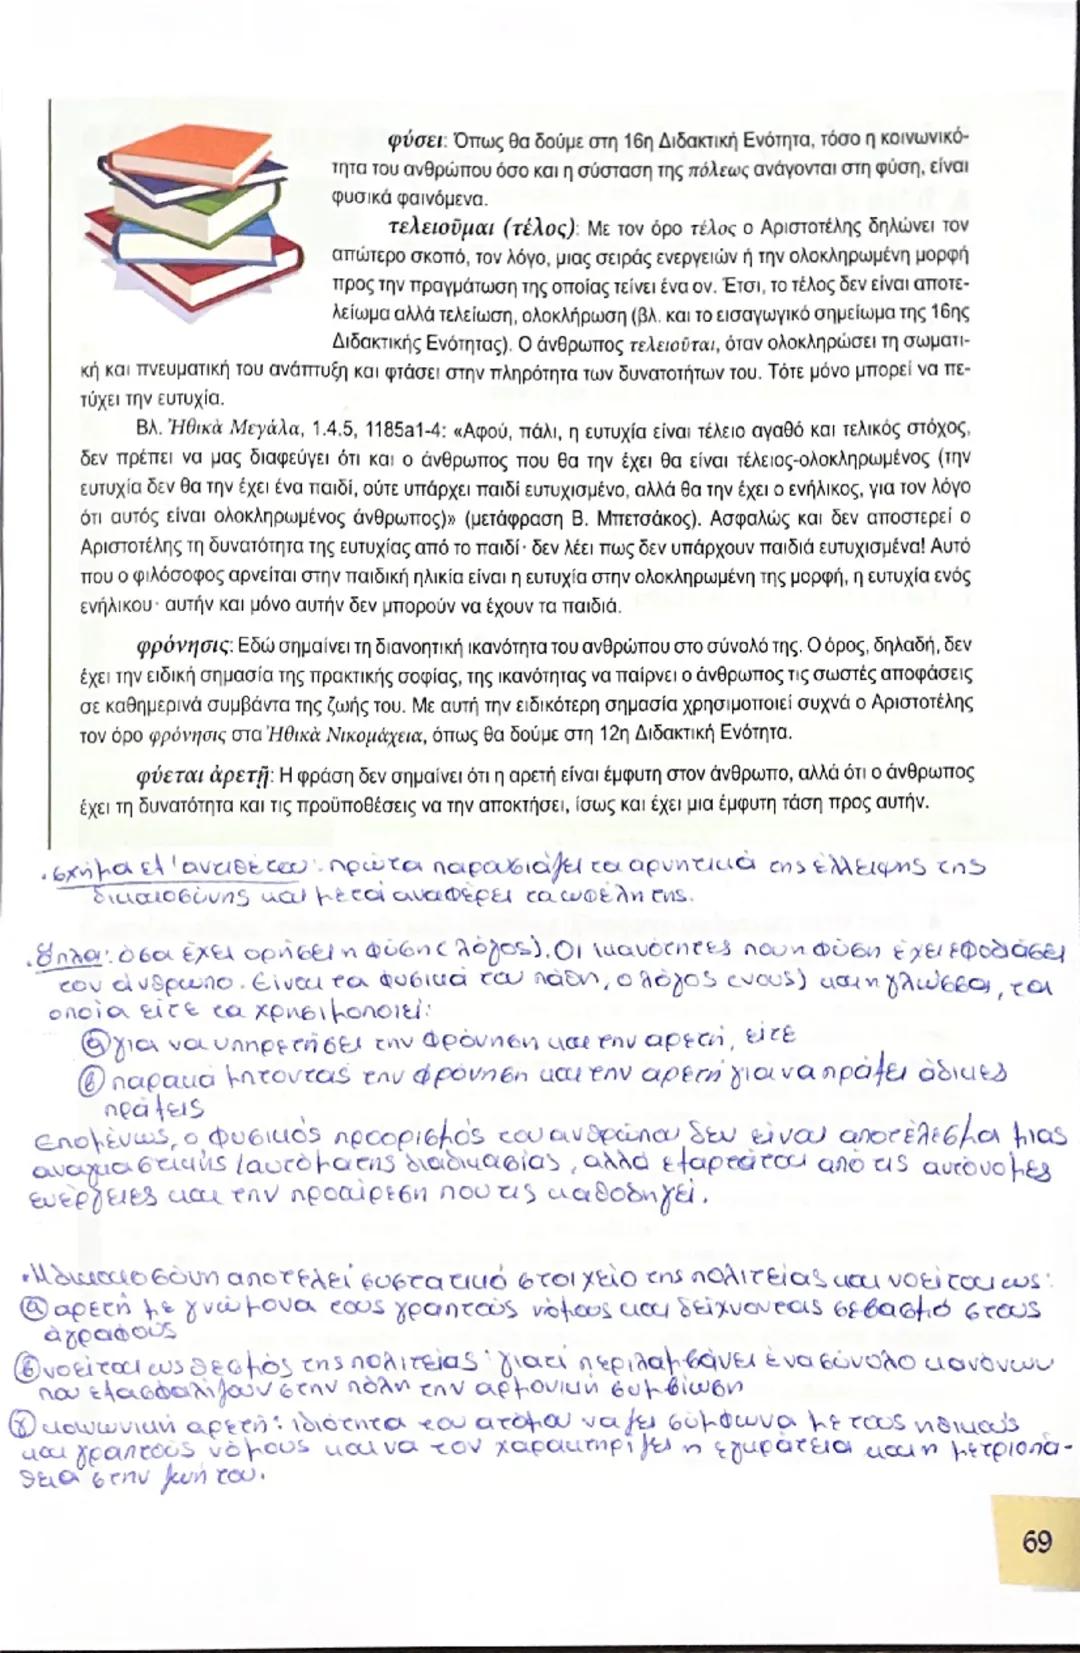 φύσει: Όπως θα δούμε στη 16η Διδακτική Ενότητα, τόσο η κοινωνικό-
τητα του ανθρώπου όσο και η σύσταση της πόλεως ανάγονται στη φύση, είναι
φυσικά φαινόμενα.
τελειοῦμαι (τέλος): Με τον όρο τέλος ο Αριστοτέλης δηλώνει τον
απώτερο σκοπό, τον λόγο, μιας σειράς ενεργειών ή την ολοκληρωμένη μορφή
προς την πραγμάτωση της οποίας τείνει ένα ον. Έτσι, το τέλος δεν είναι αποτε-
λείωμα αλλά τελείωση, ολοκλήρωση (βλ. και το εισαγωγικό σημείωμα της 16ης
Διδακτικής Ενότητας). Ο άνθρωπος τελειοῦται, όταν ολοκληρώσει τη σωματι-
κή και πνευματική του ανάπτυξη και φτάσει στην πληρότητα των δυνατοτήτων του. Τότε μόνο μπορεί να πε-
τύχει την ευτυχία.
Βλ. Ἠθικὰ Μεγάλα, 1.4.5, 1185a1-4: «Αφού, πάλι, η ευτυχία είναι τέλειο αγαθό και τελικός στόχος,
δεν πρέπει να μας διαφεύγει ότι και ο άνθρωπος που θα την έχει θα είναι τέλειος-ολοκληρωμένος (την
ευτυχία δεν θα την έχει ένα παιδί, ούτε υπάρχει παιδί ευτυχισμένο, αλλά θα την έχει ο ενήλικος, για τον λόγο
ότι αυτός είναι ολοκληρωμένος άνθρωπος)» (μετάφραση Β. Μπετσάκος). Ασφαλώς και δεν αποστερεί ο
Αριστοτέλης τη δυνατότητα της ευτυχίας από το παιδί· δεν λέει πως δεν υπάρχουν παιδιά ευτυχισμένα! Αυτό
που ο φιλόσοφος αρνείται στην παιδική ηλικία είναι η ευτυχία στην ολοκληρωμένη της μορφή, η ευτυχία ενός
ενήλικου· αυτήν και μόνο αυτήν δεν μπορούν να έχουν τα παιδιά.
φρόνησις: Εδώ σημαίνει τη διανοητική ικανότητα του ανθρώπου στο σύνολό της. Ο όρος, δηλαδή, δεν
έχει την ειδική σημασία της πρακτικής σοφίας, της ικανότητας να παίρνει ο άνθρωπος τις σωστές αποφάσεις
σε καθημερινά συμβάντα της ζωής του. Με αυτή την ειδικότερη σημασία χρησιμοποιεί συχνά ο Αριστοτέλης
τον όρο φρόνησις στα Ἠθικὰ Νικομάχεια, όπως θα δούμε στη 12η Διδακτική Ενότητα.
φύεται ἀρετῇ: Η φράση δεν σημαίνει ότι η αρετή είναι έμφυτη στον άνθρωπο, αλλά ότι ο άνθρωπος
έχει τη δυνατότητα και τις προϋποθέσεις να την αποκτήσει, ίσως και έχει μια έμφυτη τάση προς αυτήν.
· σχήμα εξ' αντιθέτου: πρώτα παρουσιάζει τα αρνητικά της έλλειψης της
δικαιοσύνης και μετά αναφέρει τα ωφέλη της.
· όπλα: όσα έχει ορίσει η φύση (λόγος). Οι ικανότητες που η φύση έχει εφοδιάσει
τον άνθρωπο. Είναι τα φυσικά του πάθη, ο λόγος (νους) και η γλώσσα, τα
οποία είτε τα χρησιμοποιεί:
ⓐ για να υπηρετήσει την φρόνηση και την αρετή, είτε
ⓑ παρακάμπτοντας την φρόνηση και την αρετή για να πράξει άδικες
πράξεις
Επομένως, ο φυσικός προορισμός του ανθρώπου δεν είναι αποτέλεσμα μιας
αναγκαστικής / αυτόματης διαδικασίας, αλλά εξαρτάται από τις αυτόνομες
ενέργειες και την προαίρεση που τις καθοδηγεί.
· Η δικαιοσύνη αποτελεί συστατικό στοιχείο της πολιτείας και νοείται ως:
ⓐ αρετή με γνώμονα τους γραπτούς νόμους και δείχνοντας σεβασμό στους
άγραφους
ⓑ νοείται ως θεσμός της πολιτείας: γιατί περιλαμβάνει ένα σύνολο κανόνων
που εξασφαλίζουν στην πόλη την αρμονική συμβίωση
ⓨ κοινωνική αρετή: ιδιότητα του ατόμου να ζει σύμφωνα με τους ηθικούς
και γραπτούς νόμους και να τον χαρακτηρίζει η εγκράτεια και η μετριοπά-
θεια στην ζωή του.
69